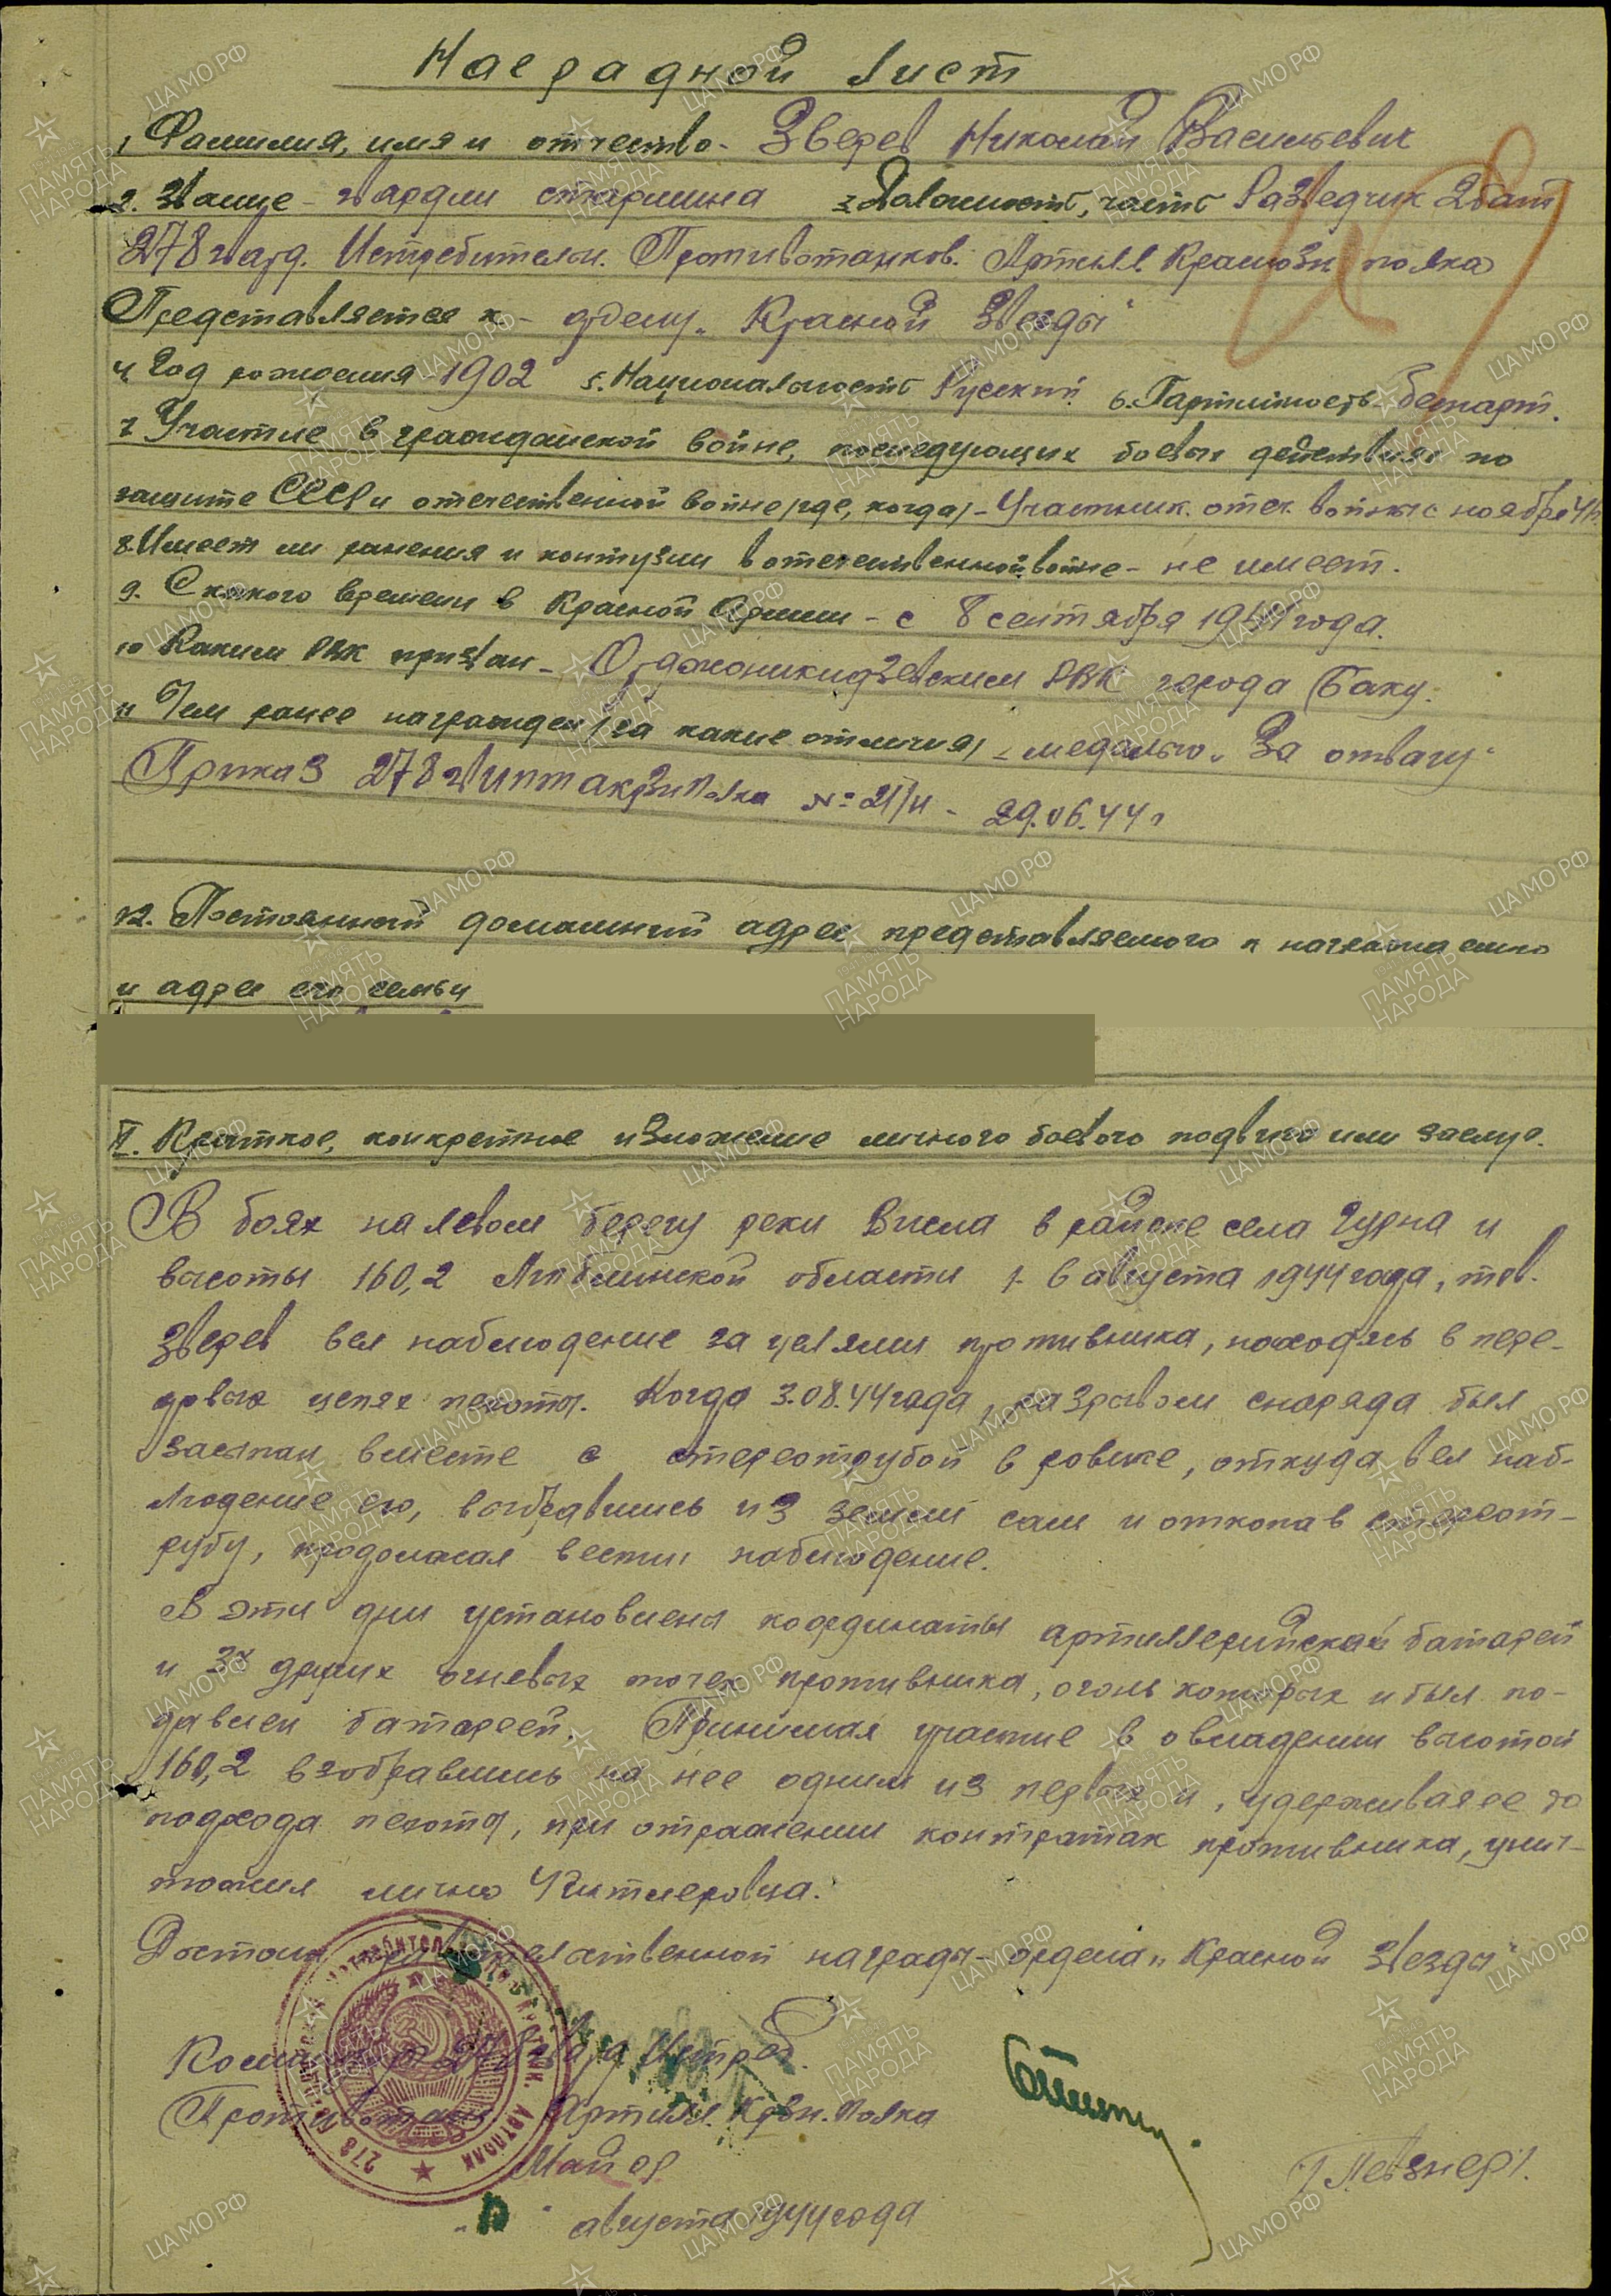 Наградной лист
1. Фамилия, имя и отчество - Зверев Николай Васильевич
2. Звание - гвардии старшина 3. Должность, часть Разведчик 2 бат
278 гвард. Истребительн. Противотанков. Артилл. Краснозн. полка
Представляется к - ордену "Красной Звезды"
4. Год рождения - 1902 5. Национальность Русский 6. Партийность - беспарт.
7. Участие в гражданской войне, последующих боевых действиях по
защите СССР и отечественной войне /где, когда/ - Участник отеч. войны с ноября
8. Имеет ли ранения и контузии в отечественной войне - не имеет.
9. С какого времени в Красной Армии - с 8 сентября 1941 года.
10 Каким РВК призван - Орджоникидзевским РВК города Баку.
11 Чем ранее награжден /за какие отличия/ - медалью "За отвагу"
Приказ 278 гв иптакрзнполка № 21/н - 29.06.44 г
12. Постоянный домашний адрес представляемого к награждению
и адрес его семьи
II. Краткое, конкретное изложение личного боевого подвига или заслуг.
В боях на левом берегу реки Висла в районе села Гурна и
высоты 160,2 Люблинской области 1-6 августа 1944 года, тов.
Зверев вел наблюдение за целями противника, находясь в пере-
довых цепях пехоты. Когда 3.08.44 года, разрывом снаряда был
засыпан вместе с стереотрубой в ровике, откуда вел наб-
людение его, выбравшись из земли сам и откопав стереот-
рубу, продолжал вести наблюдение.
В эти дни установлены координаты артиллерийской батареи
и 3х других огневых точек противника, огонь которых и был по-
давлен батареей. Принимая участие в овладении высотой
160,2 взобравшись на нее одним из первых и, удерживая ее до
подхода пехоты, при отражении контратак противника, унич-
тожил лично 4 гитлеровца.
Достоин правительственной награды - ордена "Красной Звезды"
Командир 278 гвард Истреб.
Противотанк Артилл. Крзн. Полка
Майор
/Певзнер/.
августа 1944 года
278 АРТПОЛК
ПАМЯТЬ НАРОДА
ЦАМО.РФ